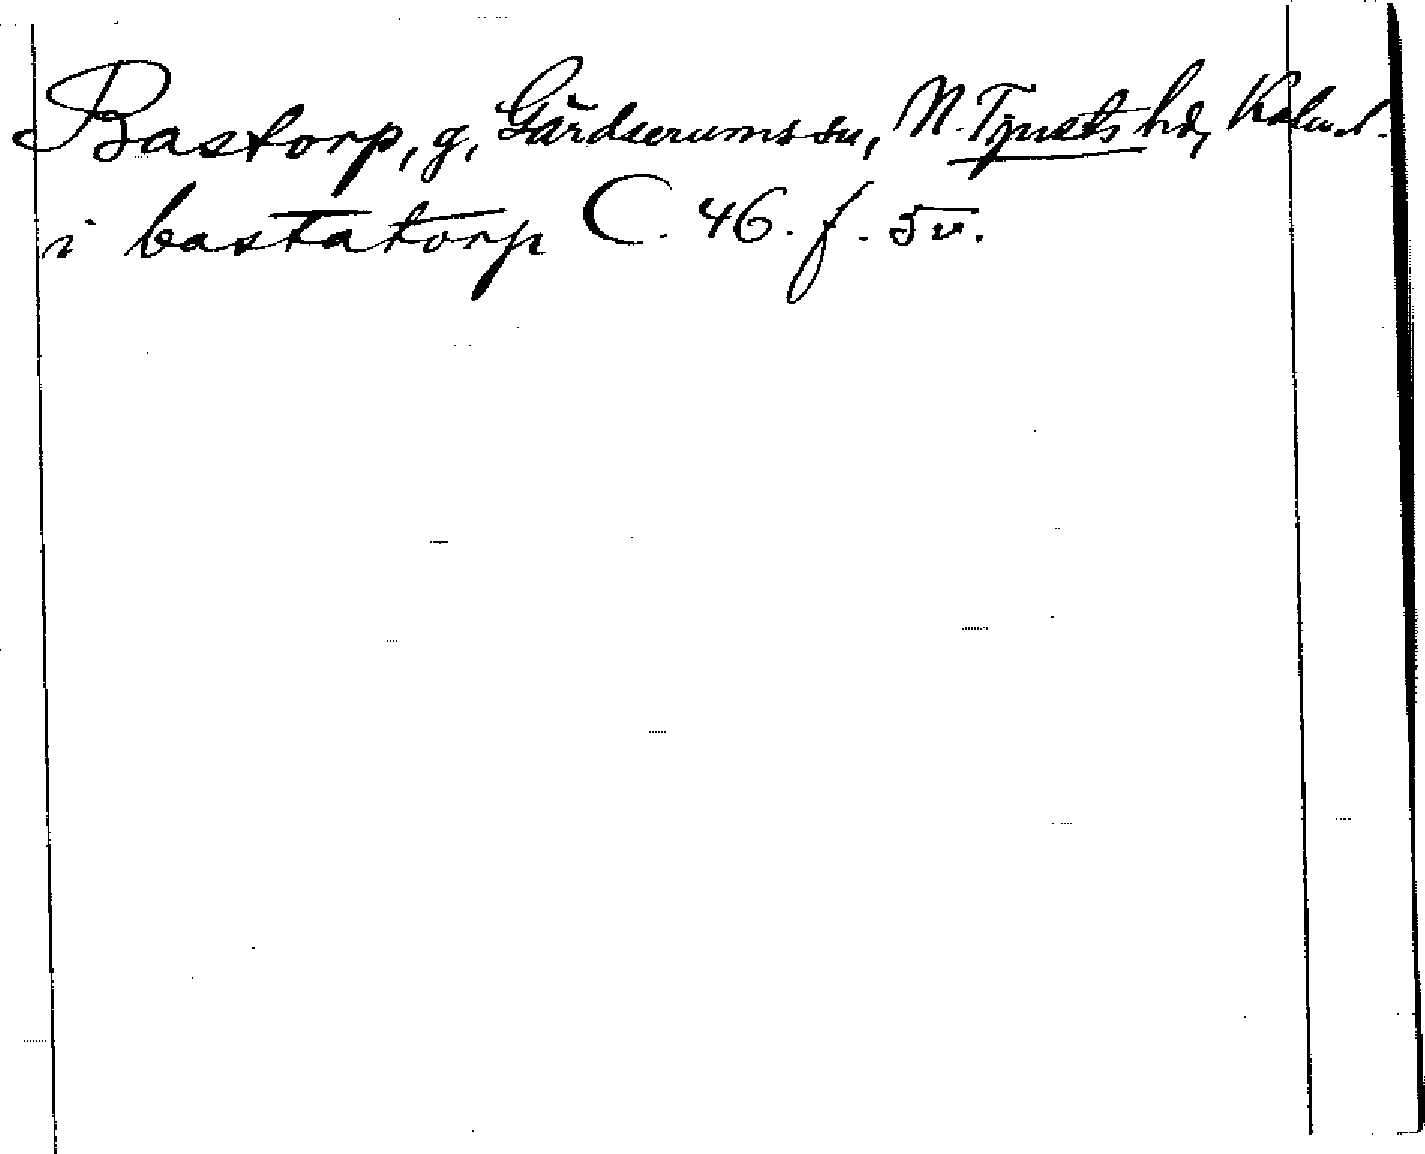 Bastorp, g, Gärdserums sn, N. Tjusts hd, Kalm. l.
i bastatorp C. 46. f. 5v.